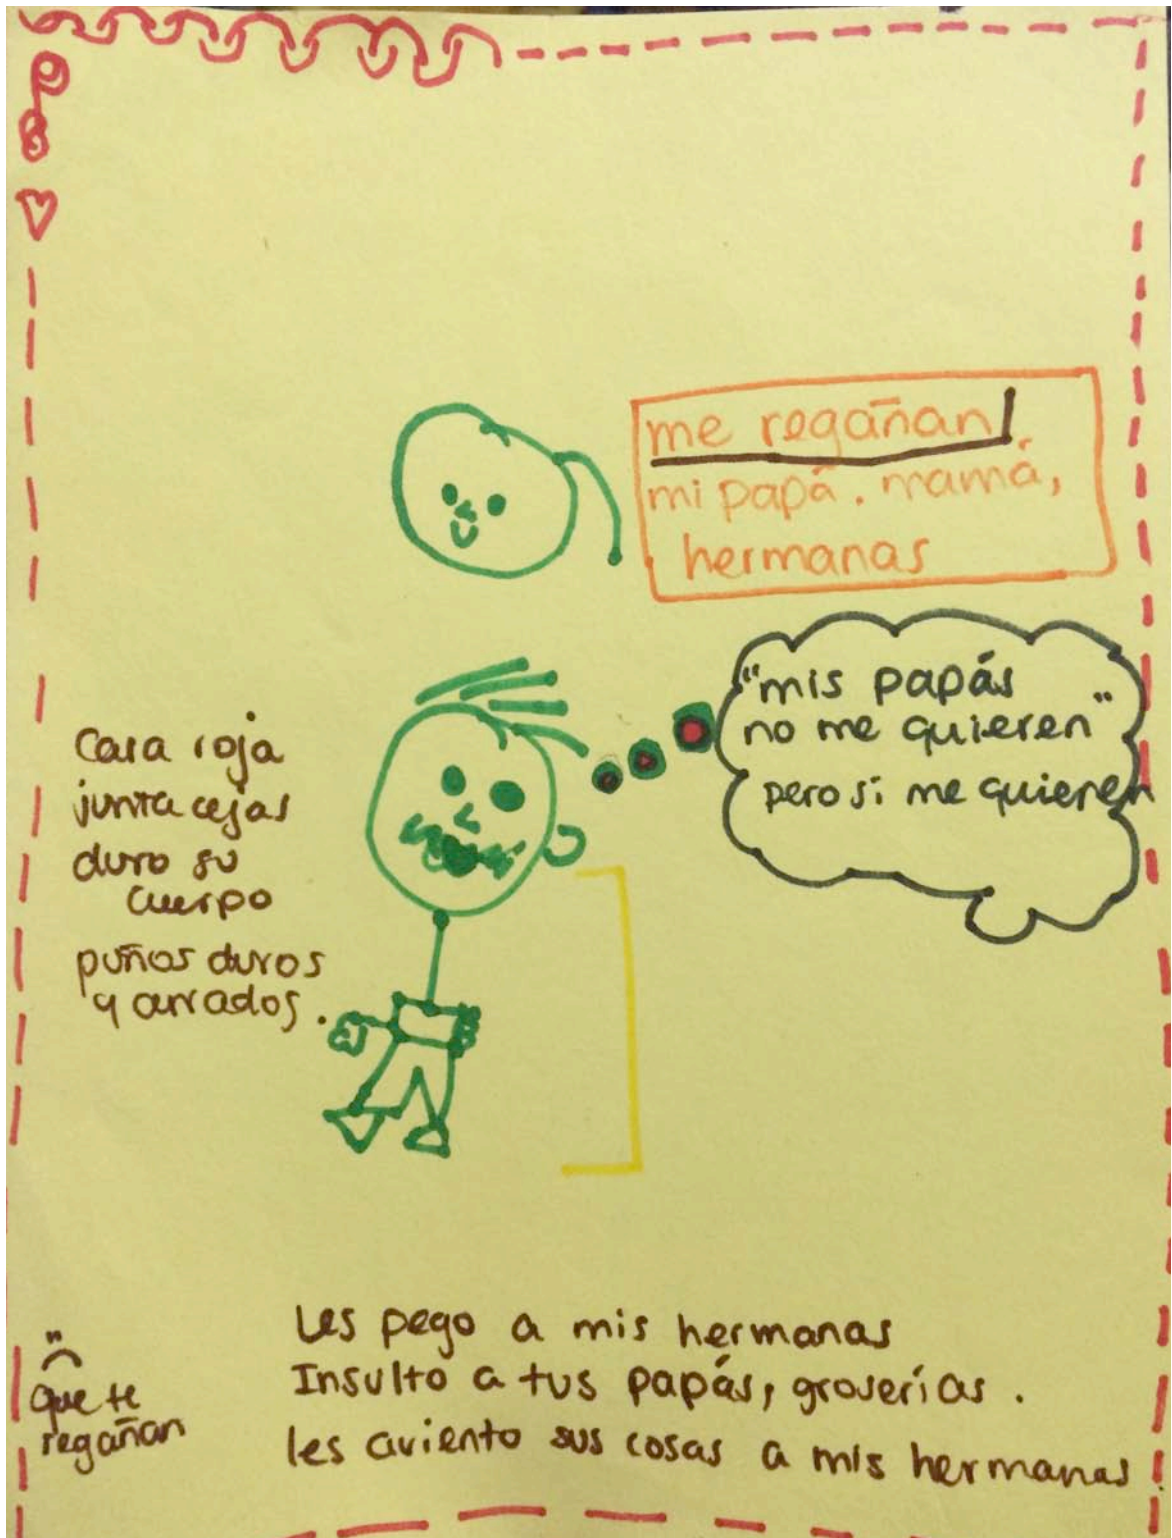 me regañan
mi papá. mamá,
hermanas
"mis papás
no me quieren"
pero si me quieren
Cara roja
junta cejas
duro su
cuerpo
puños duros
y cerrados.
Les pego a mis hermanas
Insulto a tus papás, groserías.
les aviento sus cosas a mis hermanas.
que te
regañan